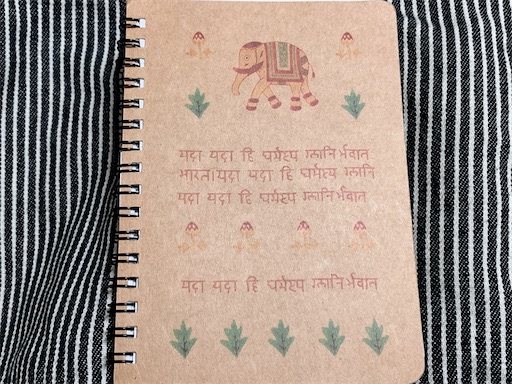 यदा यदा हि धर्मस्य ग्लानिर्भवात
भारता।यदा यदा हि धर्मस्य ग्लानि
यदा यदा हि धर्मस्य ग्लानिर्भवात
यदा यदा हि धर्मस्य ग्लानिर्भवात